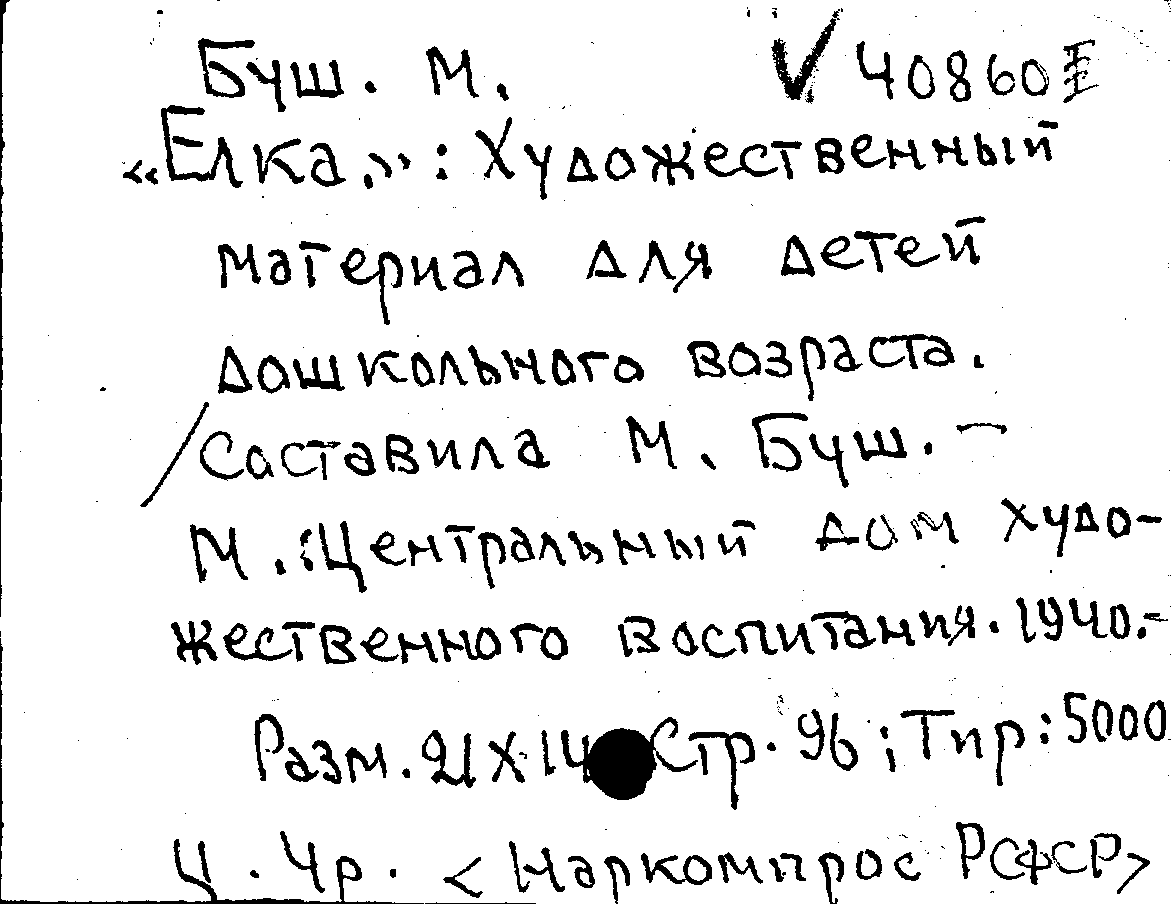 Буш. М. V 40860
«Елка.»: Художественный
материал для детей
дошкольного возраста.
/Составила М. Буш. –
М.:Центральный дом худо-
жественного воспитания. 1940.-
Разм. 21X14 Стр. 96; Тир: 5000
Ц. 4р. <Наркомпрос РСФСР>